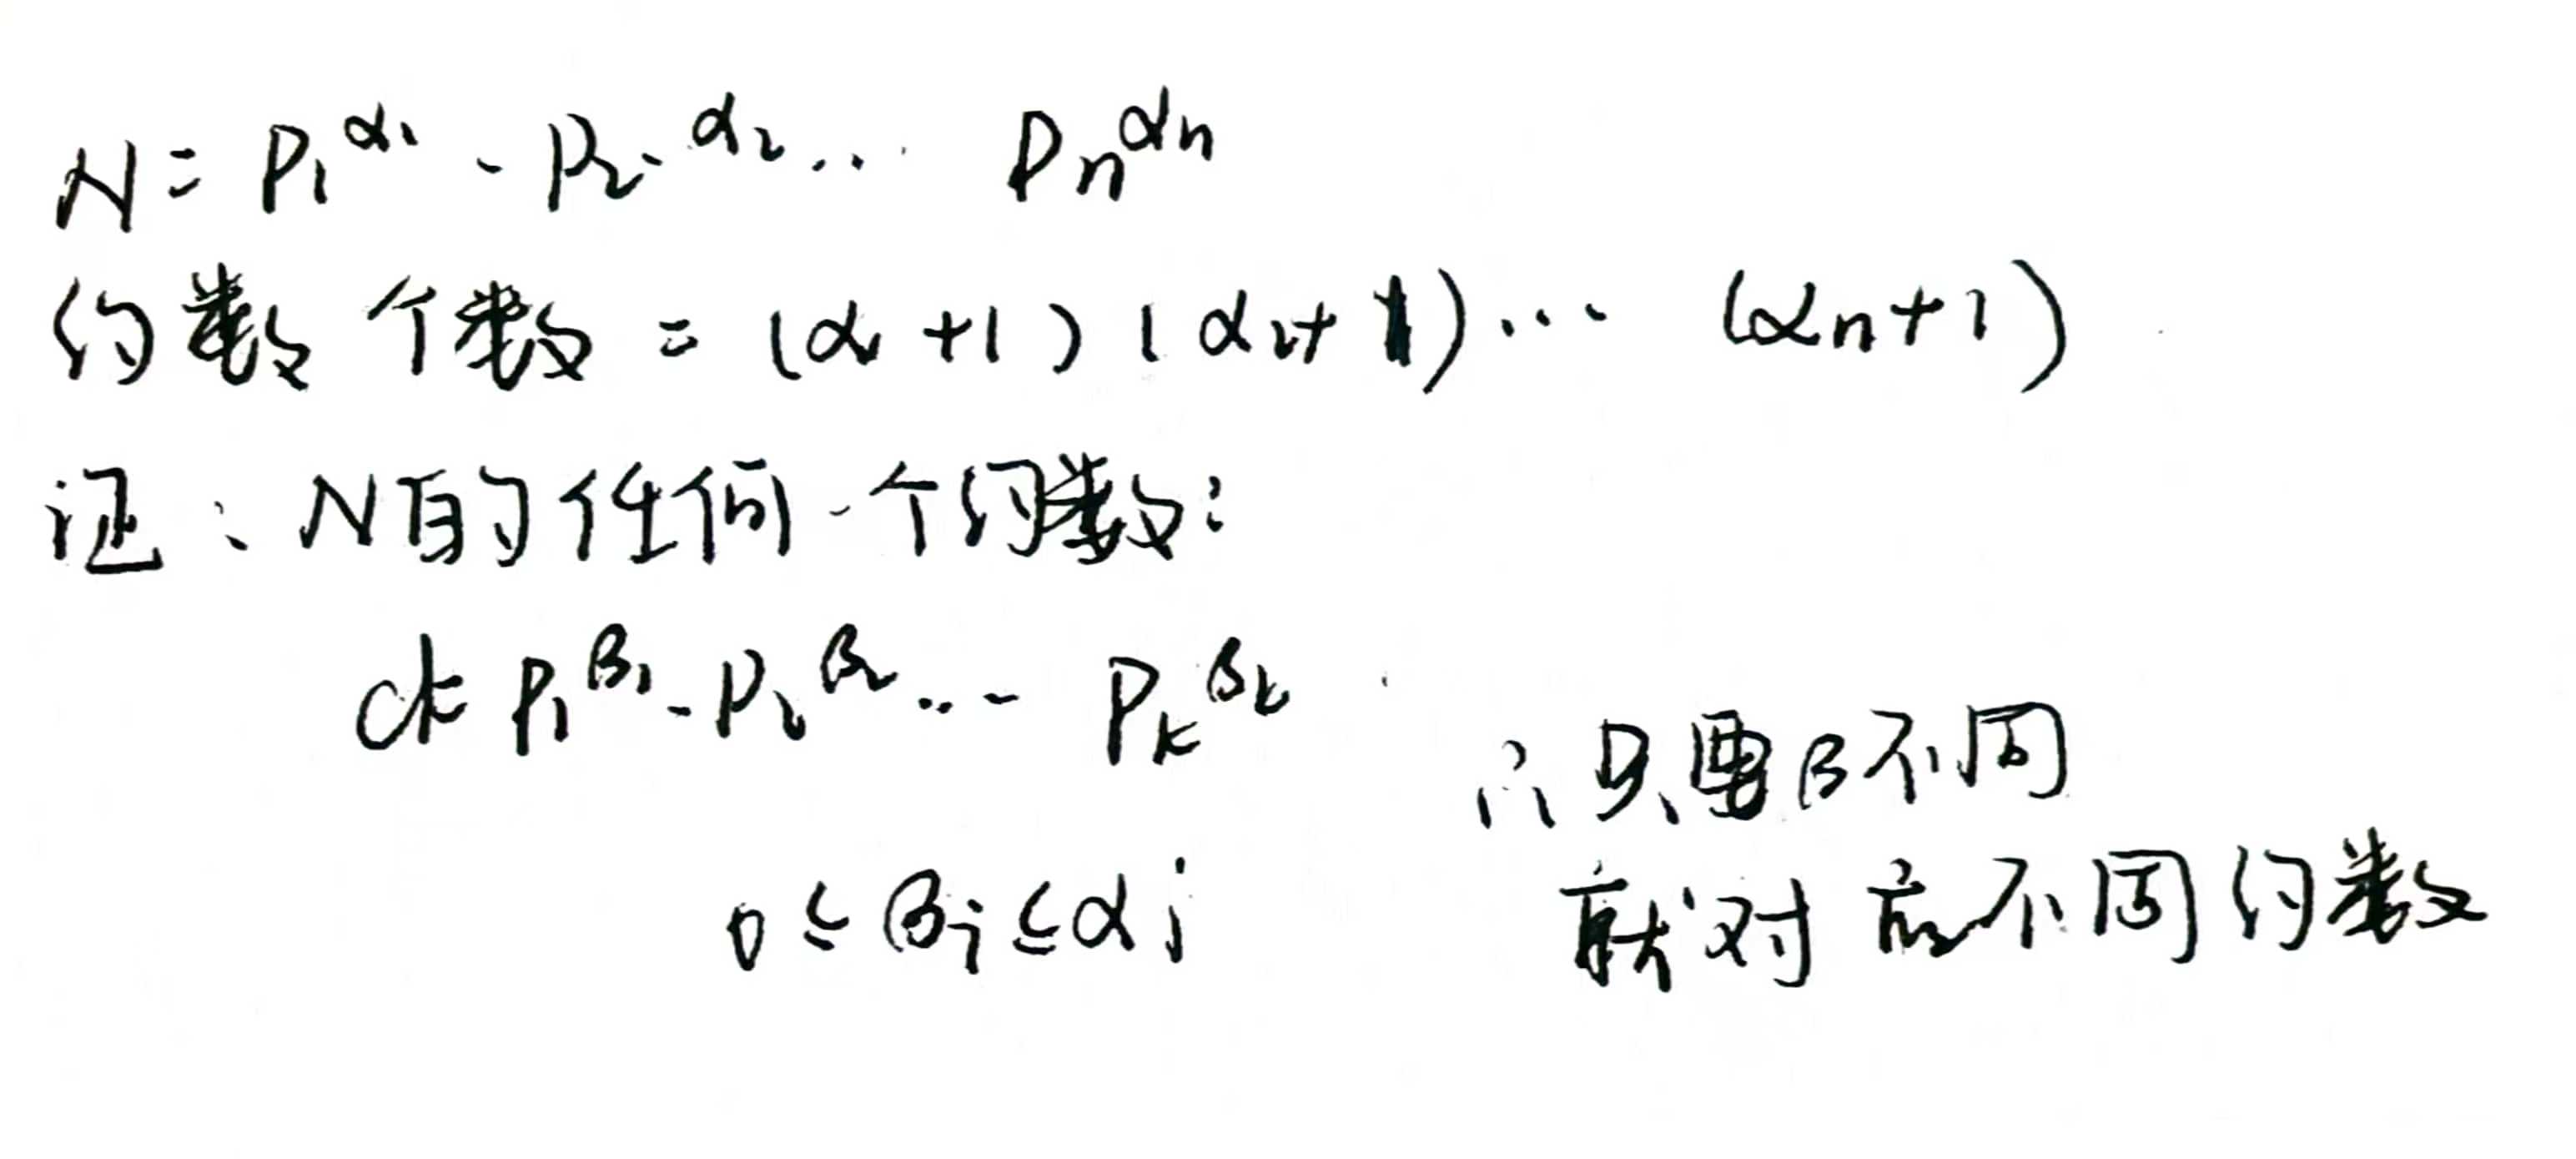 N = P₁^α₁ · P₂^α₂ ... Pₙ^αₙ
约数个数 = (α₁+1)(α₂+1)... (αn+1)
证: N的任何一个约数:
d = P₁^β₁ · P₂^β₂ ... Pₖ^βₖ
∴ 只要β不同
0 ≤ βi ≤ αi
就对应不同约数